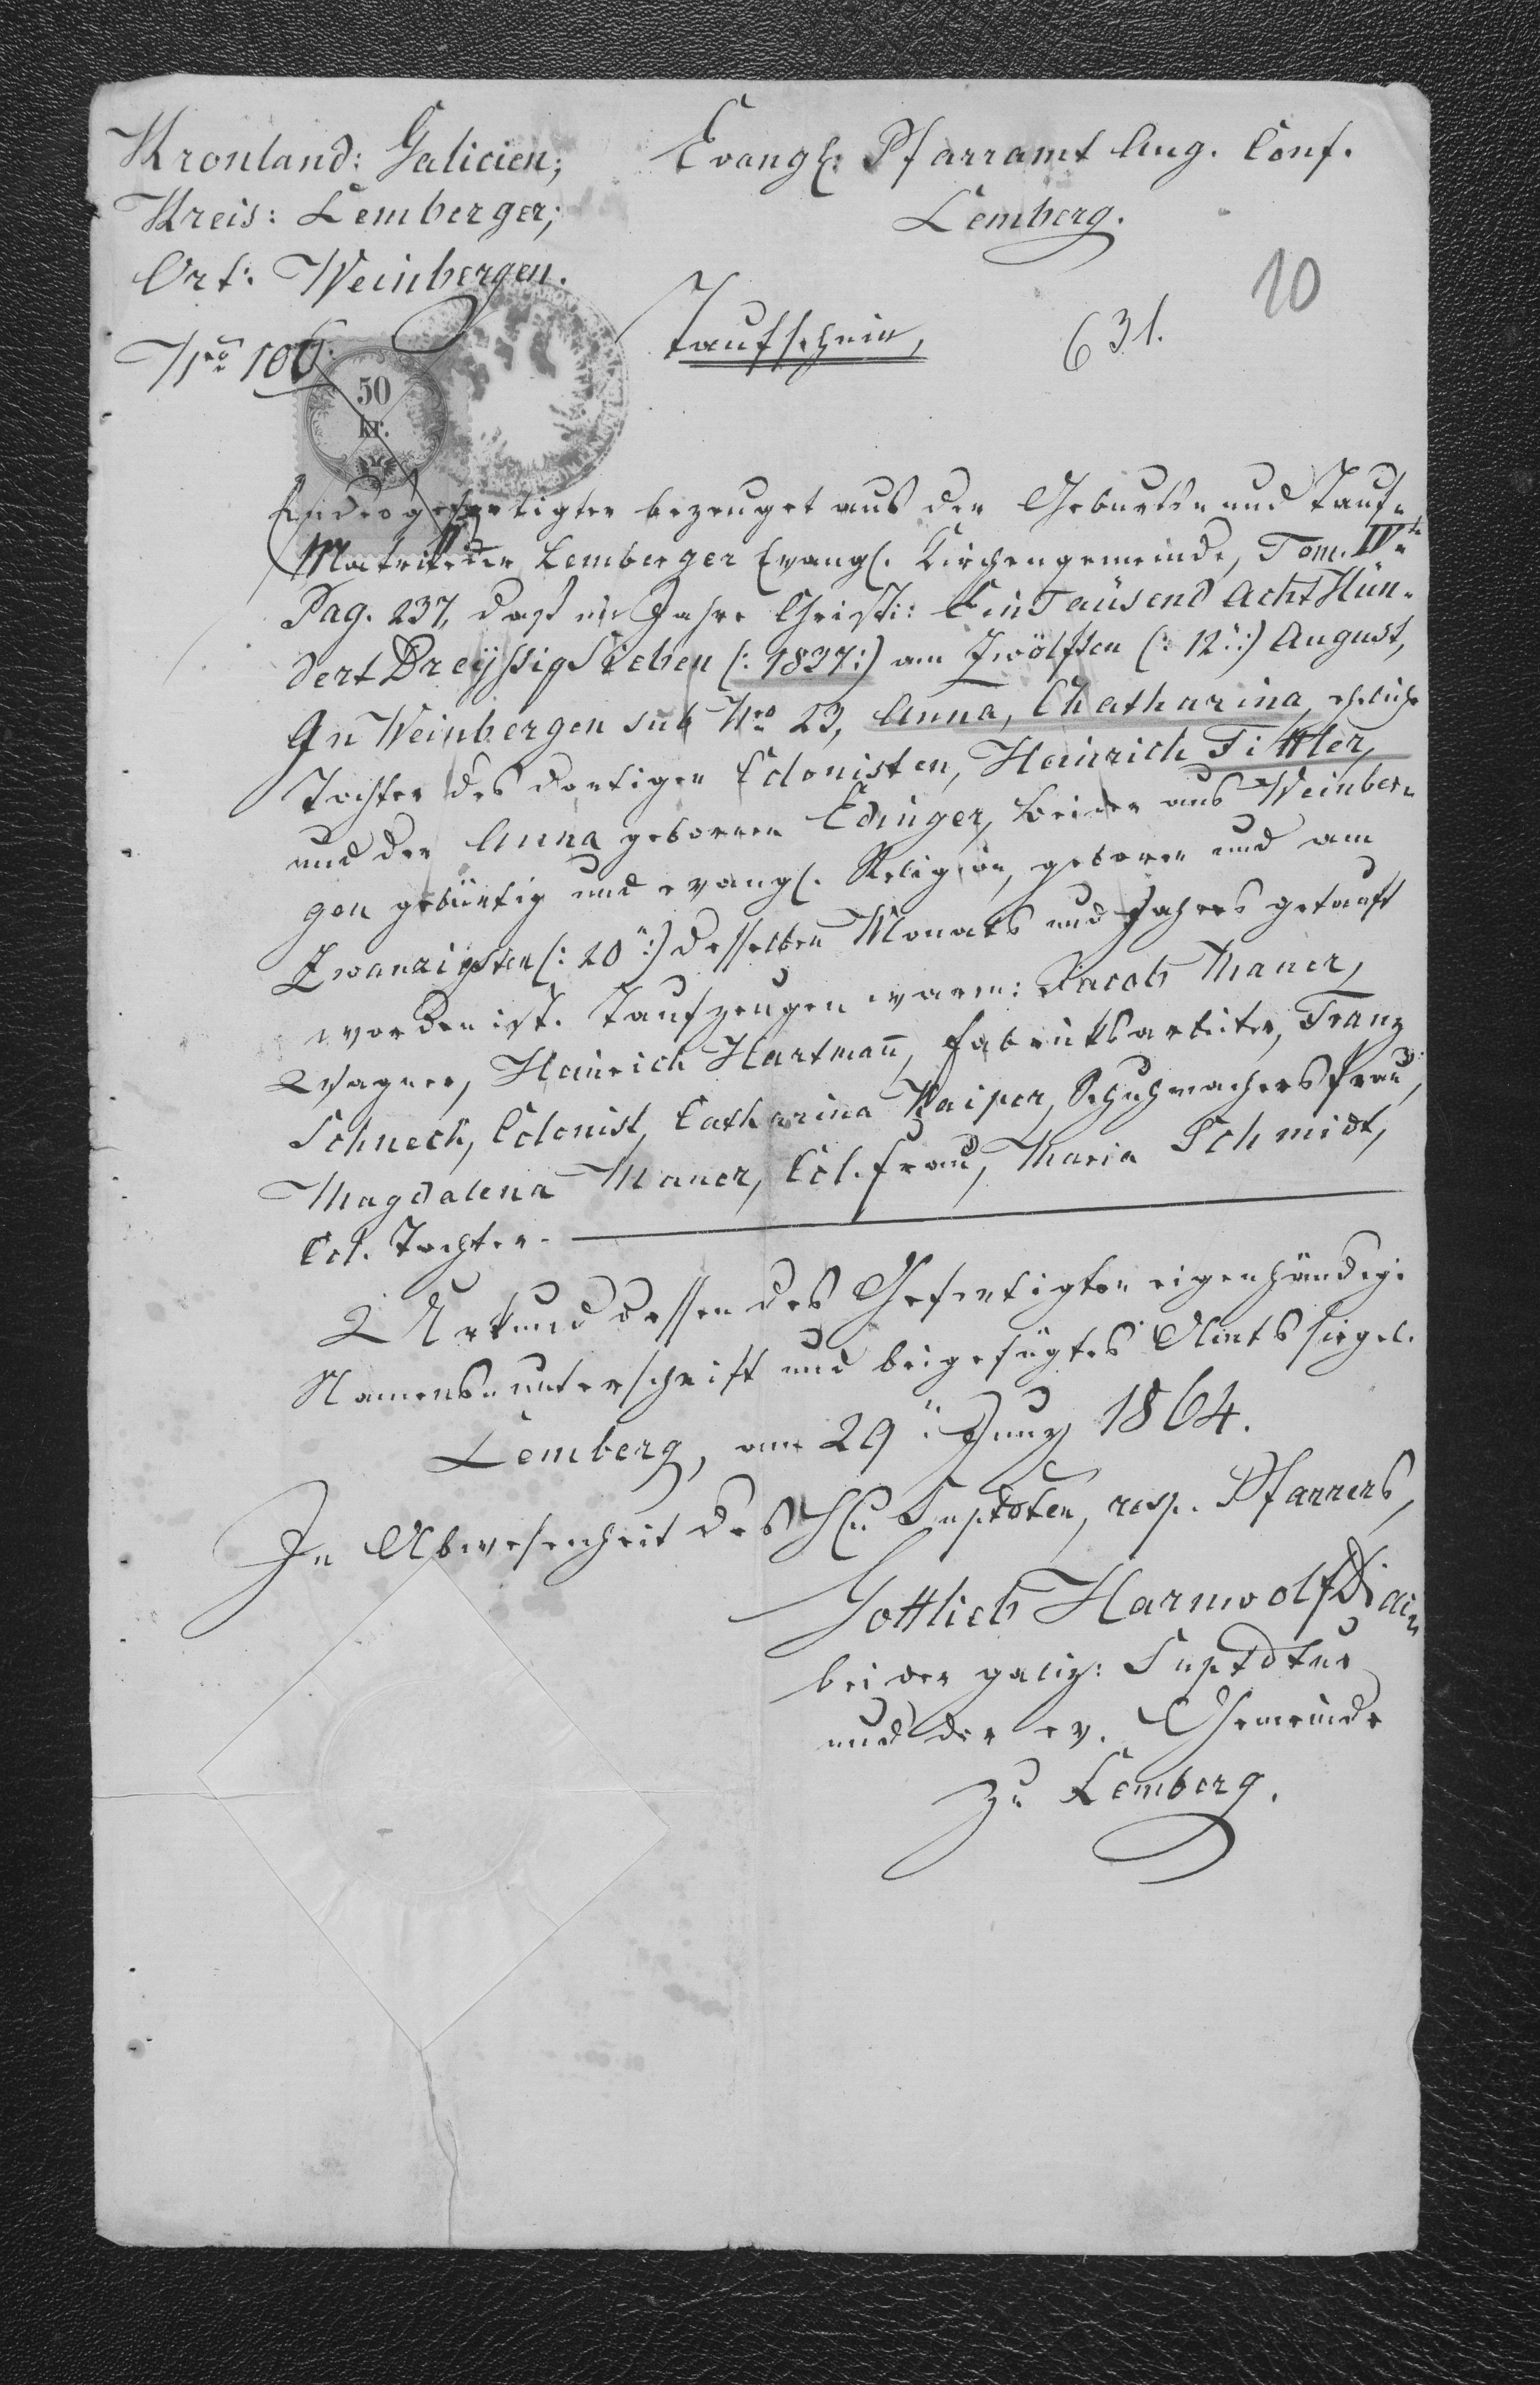 Kronland: Galicien;
Kreis: Lemberger;
Ort: Weinbergen.
Nro 106.
Evangl: Pfarramt Aug. Conf.
Lemberg.
Taufschein,
631.
10
50
kr.
Endesgefertigter bezeuget aus der Geburts- und Tauf-
Matrik der Lemberger Evangl. Kirchengemeinde, Tom. IV
Pag. 237, daß im Jahre Christi: Ein Tausend Acht Hun-
dert Dreyßig Sieben (: 1837 :) am Zwölften (: 12 :) August,
In Weinbergen sub Nro 23, Anna, Chatharina, eheliche
Tochter des dortigen Colonisten, Heinrich Tittler,
und der Anna gebornen Edinger, beider aus Weinber-
gen gebürtig und evangl. Religion, geboren und am
Zwanzigsten (: 20 :) desselben Monats und Jahres getauft
worden ist. Taufzeugen waren: Jacob Maner,
Wagner, Heinrich Hartmann̄, Fabriksarbeiter, Franz
Schneck, Colonist, Catharina Kaiper, Schuhmachersfrau,
Magdalena Maner, Col. Frau, Maria Schmidt,
Col. Tochter.
Urkund dessen des Gefertigten eigenhändige
Namens-unterschrift und beigefügtes Amtssiegel.
Lemberg, am 29 Juny 1864.
In Abwesenheit des H. Suptdten, resp. Pfarrers,
Gottlieb Harwolf
bei der galiz: Suptdtur
und der ev. Gemeinde
zu Lemberg.